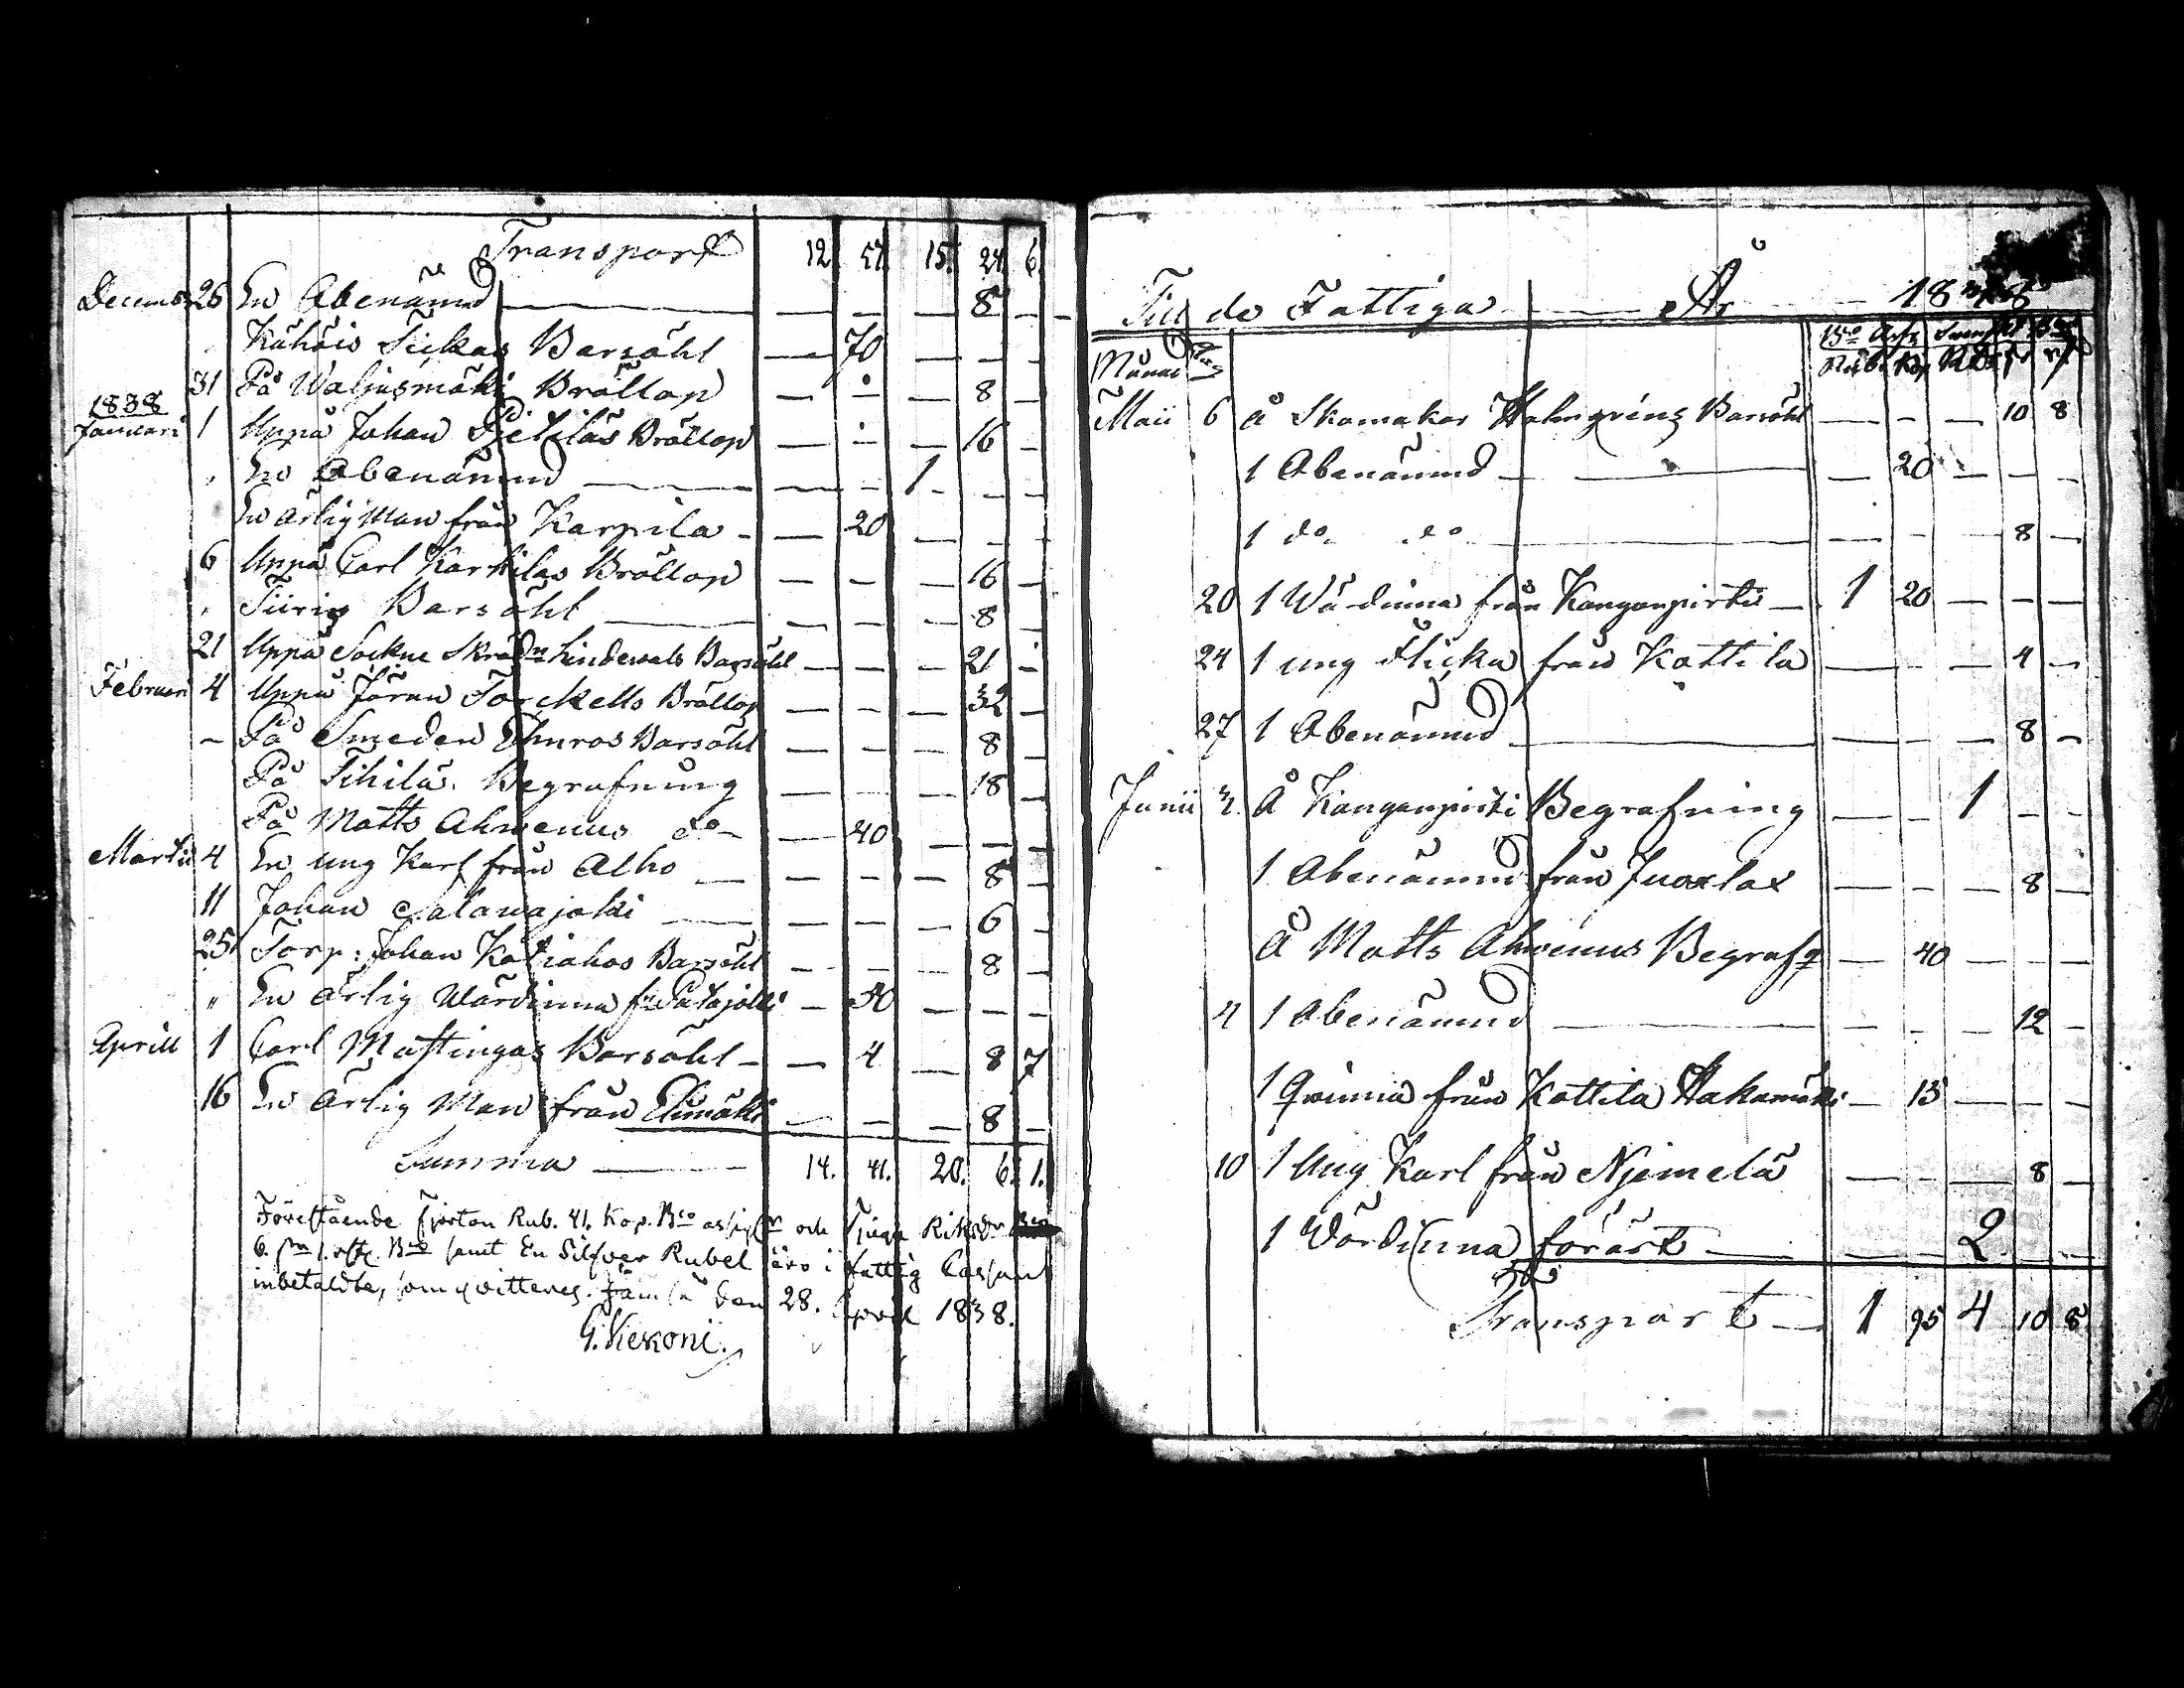 Transport 12. 57. 15. 24. 6.
Decemb: 26 En Obenämnd — — — 8 —
Kähöis Tickas Barsöhl — 70 — — —
31 På Waljusmäki Bröllop — — — 8 —
1838
Januari 1 Uppå Johan Pietiläs Bröllop — — — 16 —
En Obenämnd — — 1 — —
En ärlig Man från Karpila — 20 — — —
6 Uppå Carl Karkilas Bröllop — — — 16 —
Tiirin Barsöhl — — — 8 —
21 Uppå Sockne Skrädn Lindewals Barsöhl — — — 21 —
Februari 4 Uppå Jöran Torckells Bröllop — — — 32 —
På Smeden Barsöhl — — — 8 —
På Tihilä Begrafning — — — 18 —
På Matts Ahwenus do — 40 — — —
Martii 4 En ung Karl från Alho — — — 8 —
11 Johan — — — 6 —
25 Torp: Johan Barsöhl — — — 8 —
" En ärlig Wärdinna fr: Patajoki — — — —
Aprill 1 Carl Mattingas Barsöhl — 4 — 8 7
16 En Ärlig Man från — — — 8 —
Summa — 14. 41. 20. 6. 1.
Förestående fjorton Rub. 41. Kop. Bco assign och Tjugu Riksdr
6. sn 1. rst. Bco samt En Silfver Rubel äro i fattig Cassan
inbetaldte, som qvitteres. Jämsä den 28. April 1838.
G. Kekoni.
Till de Fattiga — År — 1838
Månad Dag Bco Sv:
Rub: Kop R.D. s r
Maii 6 Å Skomakar Holmgréns Barsöhl — — — 10 8
1 Obenämnd — — 20 — — —
1 do do — — — 8 —
20 1 Wärdinna från Kanganpirti — 1 20 — — —
24 1 ung flicka från Kottila — — — 4 —
27 1 Obenämnd — — — 8 —
Junii 3. Å Kanganpirti Begrafning — — 1 — —
1 Obenämnd från Juoxlax — — — 8 —
Å Matts Ahwenus Begrafg — 40 — — —
4 1 Obenämnd — — — 12 —
1 Qwinna från Kottila Hakamäki — 15 — — —
10 1 Ung Karl från Njemelä — — — 8 —
1 Wördinna förärt — — 2 — —
Transport — 1 95 4 10 8